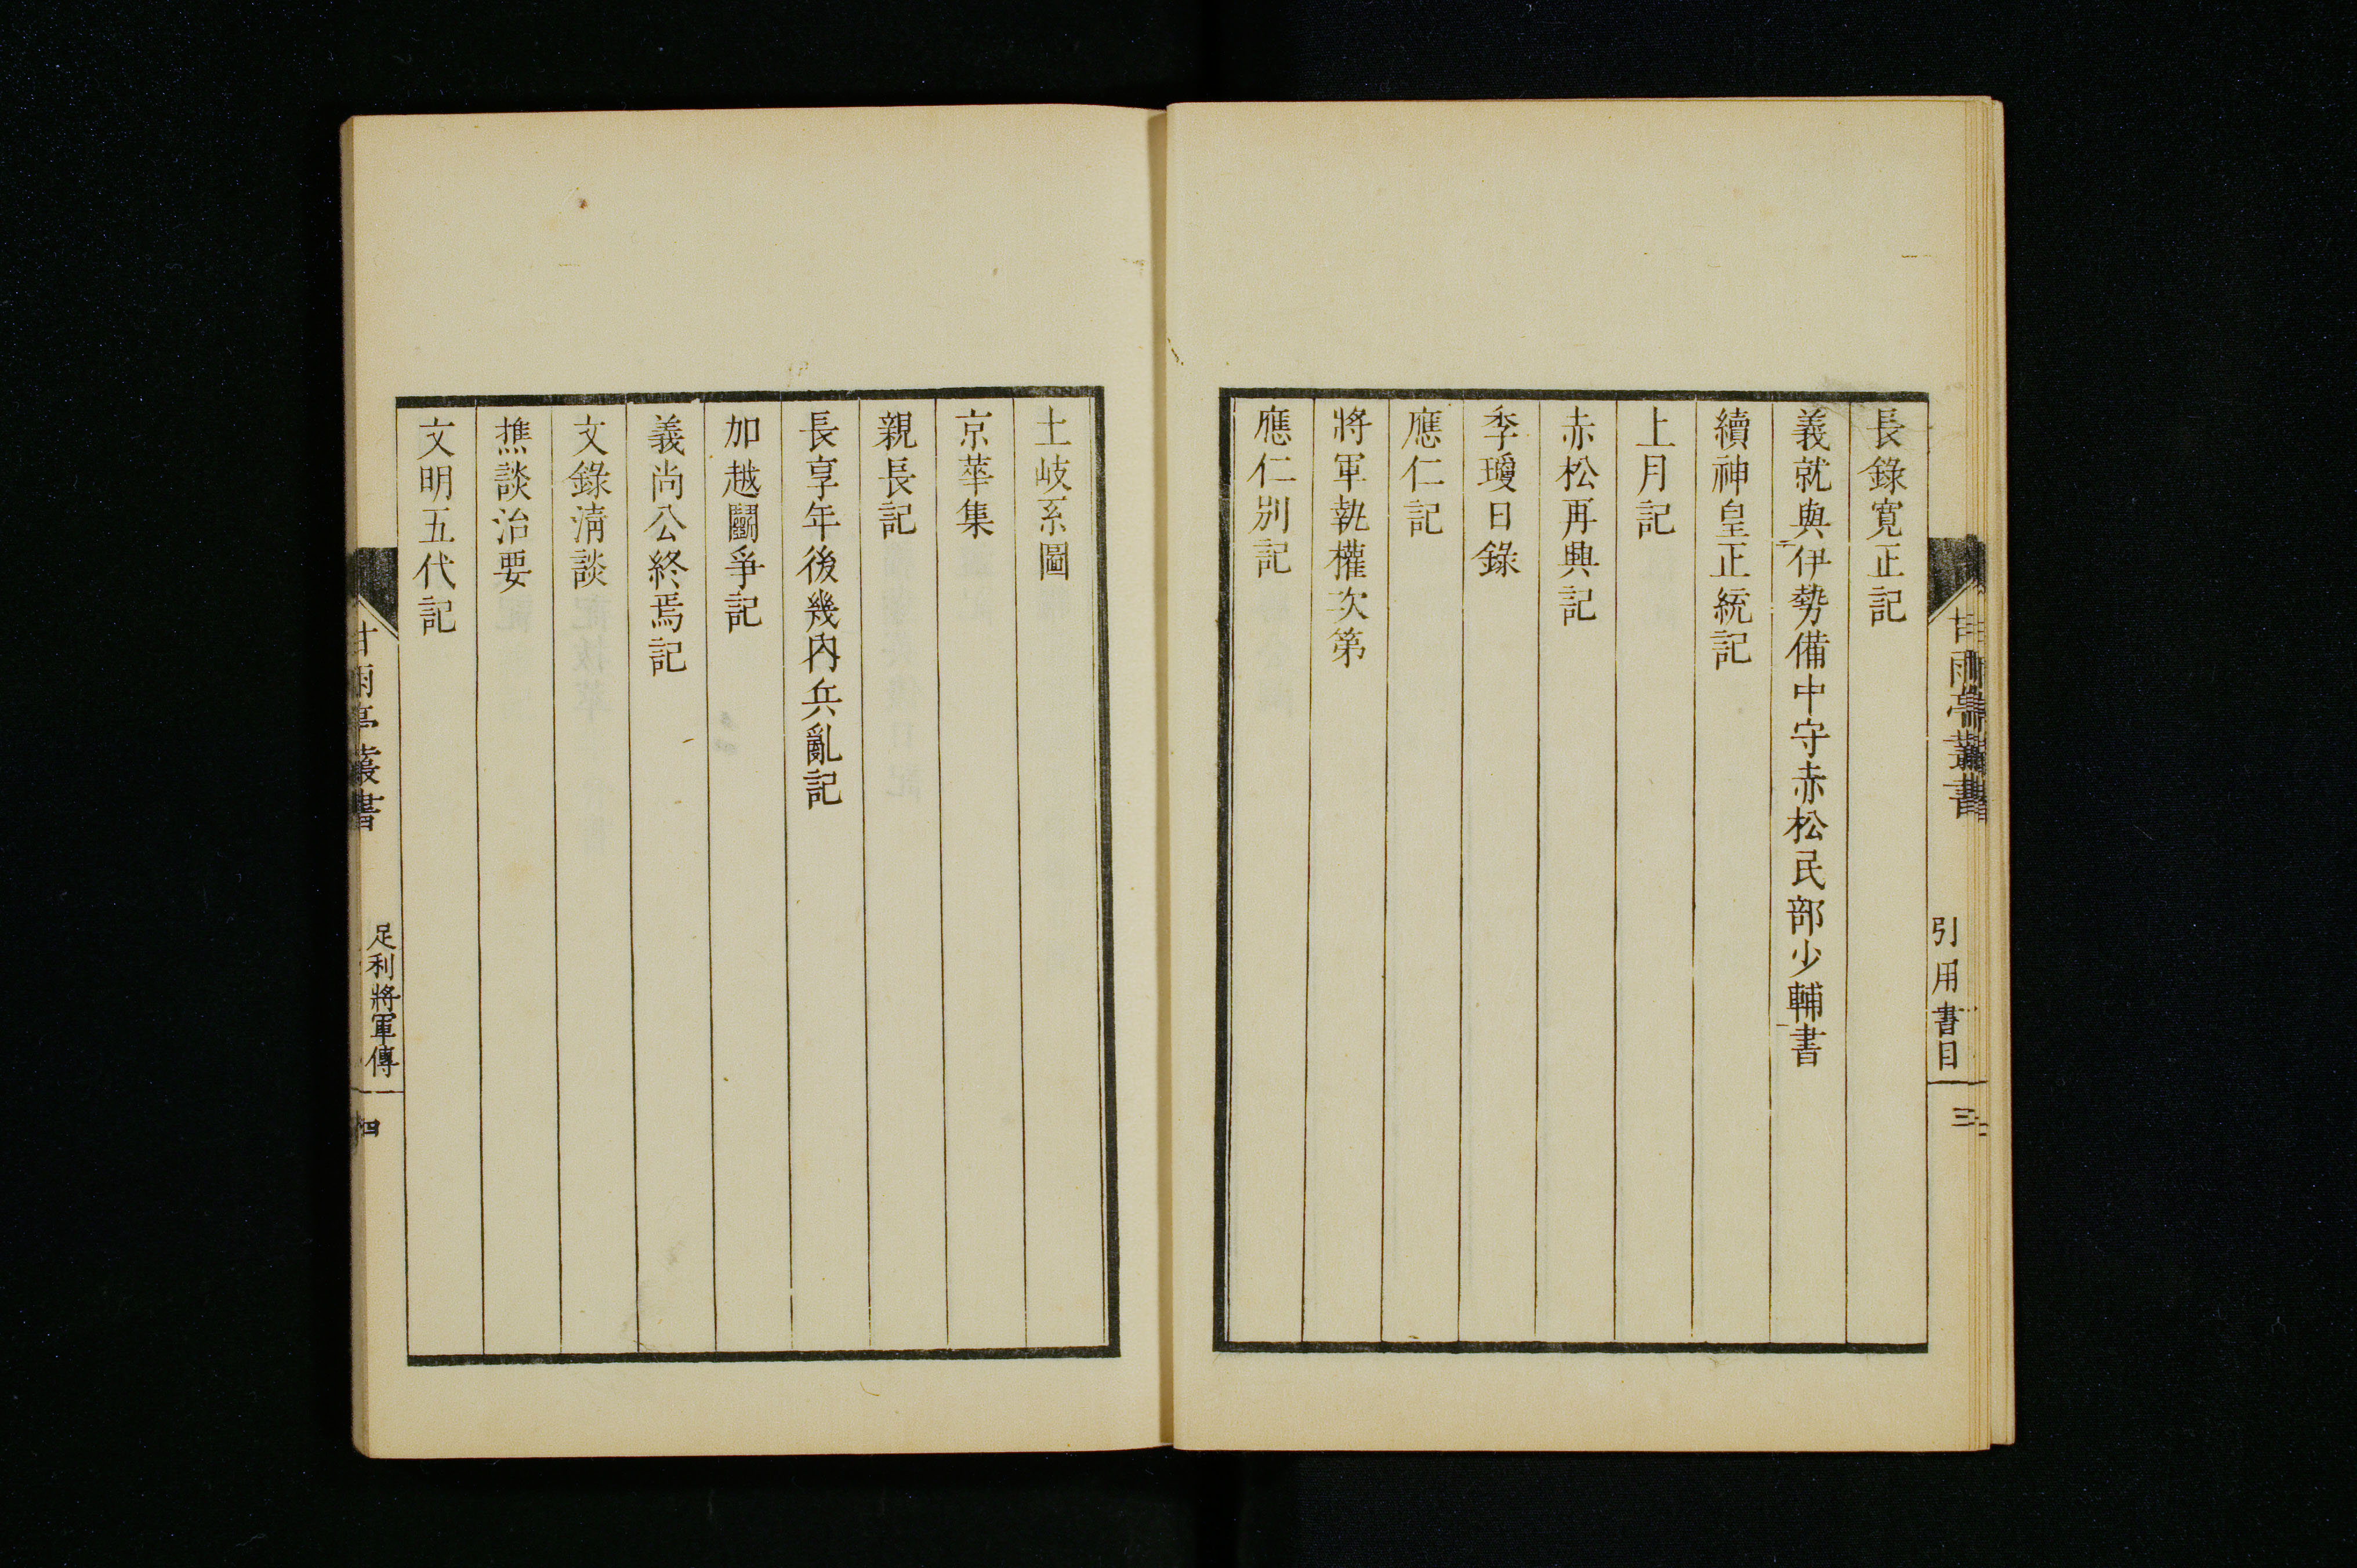 甘雨亭叢書
引用書目
三
長錄寛正記
義就與伊勢備中守赤松民部少輔書
續神皇正統記
上月記
赤松再興記
季瓊日錄
應仁記
將軍執權次第
應仁別記
土岐系圖
京華集
親長記
長享年後幾內兵亂記
加越鬪爭記
義尚公終焉記
文錄淸談
撨談治要
文明五代記
甘雨亭叢書
足利將軍傳
四